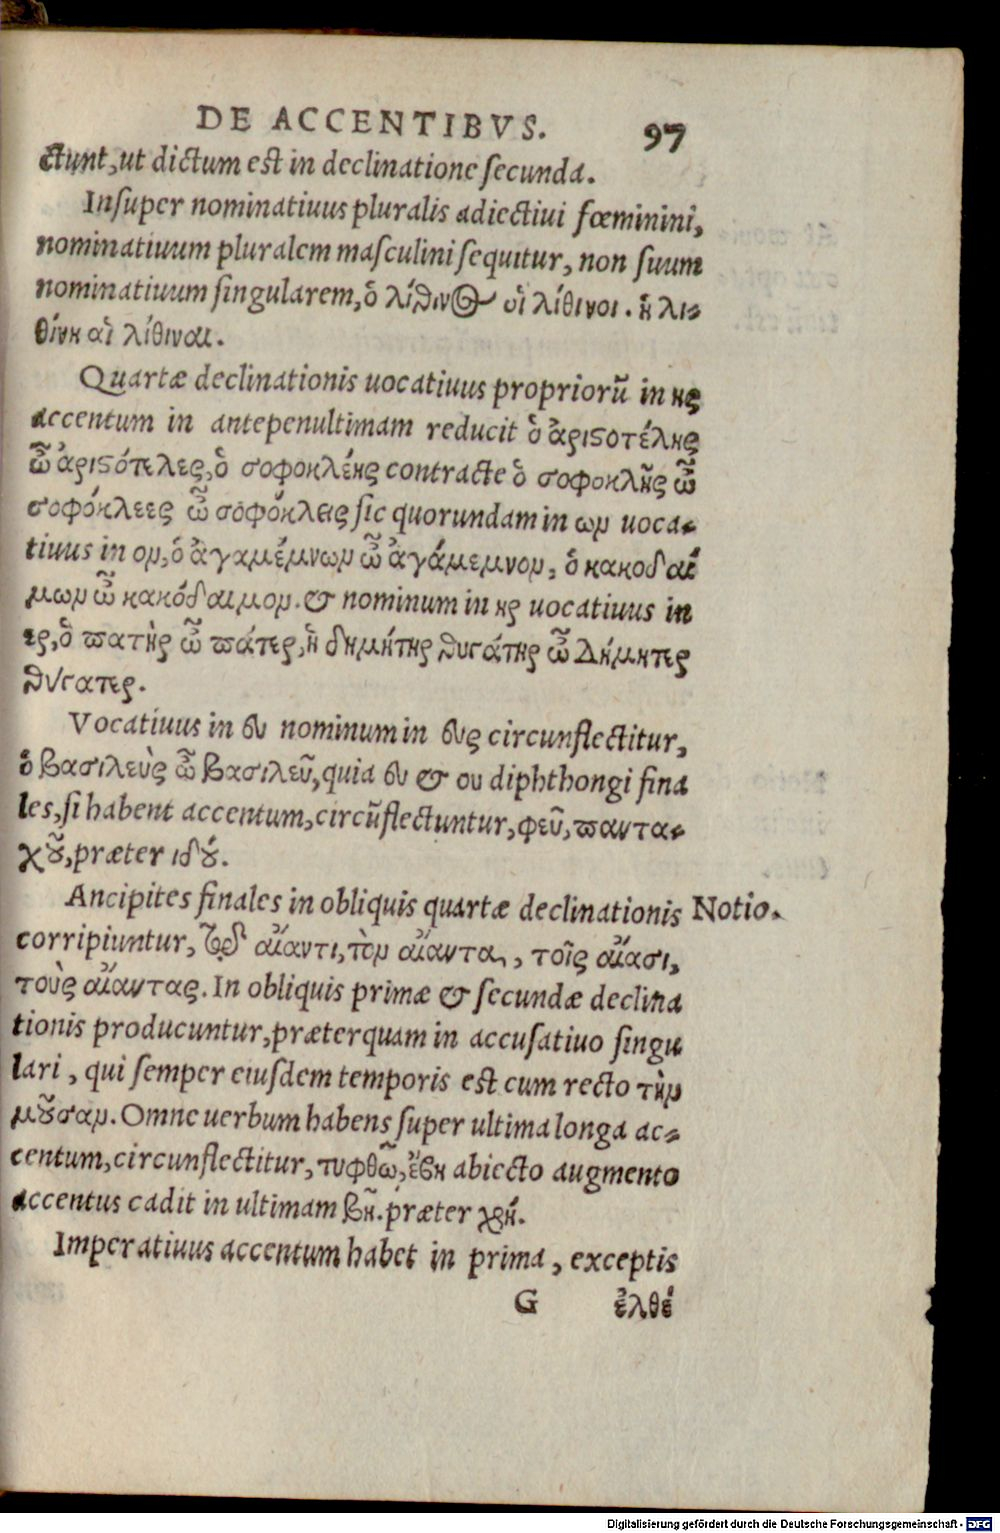 DE ACCENTIBVS. 97
ctunt, ut dictum est in declinatione secunda.
Insuper nominatiuus pluralis adiectiui fœminini,
nominatiuum pluralem masculini sequitur, non suum
nominatiuum singularem, ὁ λίθινος οἱ λίθινοι. ἡ λι-
θίνη αἱ λίθιναι.
Quartæ declinationis uocatiuus propriorũ in ης
accentum in antepenultimam reducit ὁ ἀριϛοτέλης
ὦ ἀριϛότελες, ὁ σοφοκλέης contracte ὁ σοφοκλῆς ὦ
σοφόκλεες ὦ σοφόκλεις sic quorundam in ων uoca-
tiuus in ον, ὁ ἀγαμέμνων ὦ ἀγάμεμνον, ὁ κακοδαί
μων ὦ κακόδαιμον. & nominum in ης uocatiuus in
ερ, ὁ πατὴρ ὦ πάτερ, ἡ δημήτης θυγάτης ὦ Δήμητερ
θύγατερ.
Vocatiuus in ευ nominum in ευς circunflectitur,
ὁ βασιλεὺς ὦ βασιλεῦ, quia ευ & ου diphthongi fina
les, si habent accentum, circũflectuntur, φεῦ, παντα-
χοῦ, præter ιδού.
Ancipites finales in obliquis quartæ declinationis Notio.
corripiuntur, τῷ αἴαντι, τὸν αἴαντα, τοῖς αἴασι,
τοὺς αἴαντας. In obliquis primæ & secundæ declina
tionis producuntur, præterquam in accusatiuo singu
lari, qui semper eiusdem temporis est cum recto τὴν
μοῦσαν. Omne uerbum habens super ultima longa ac-
centum, circunflectitur, τυφθῶ, ἔβη abiecto augmento
accentus cadit in ultimam βῆ. præter χρή.
Imperatiuus accentum habet in prima, exceptis
G ἐλθέ
Digitalisierung gefördert durch die Deutsche Forschungsgemeinschaft - DFG